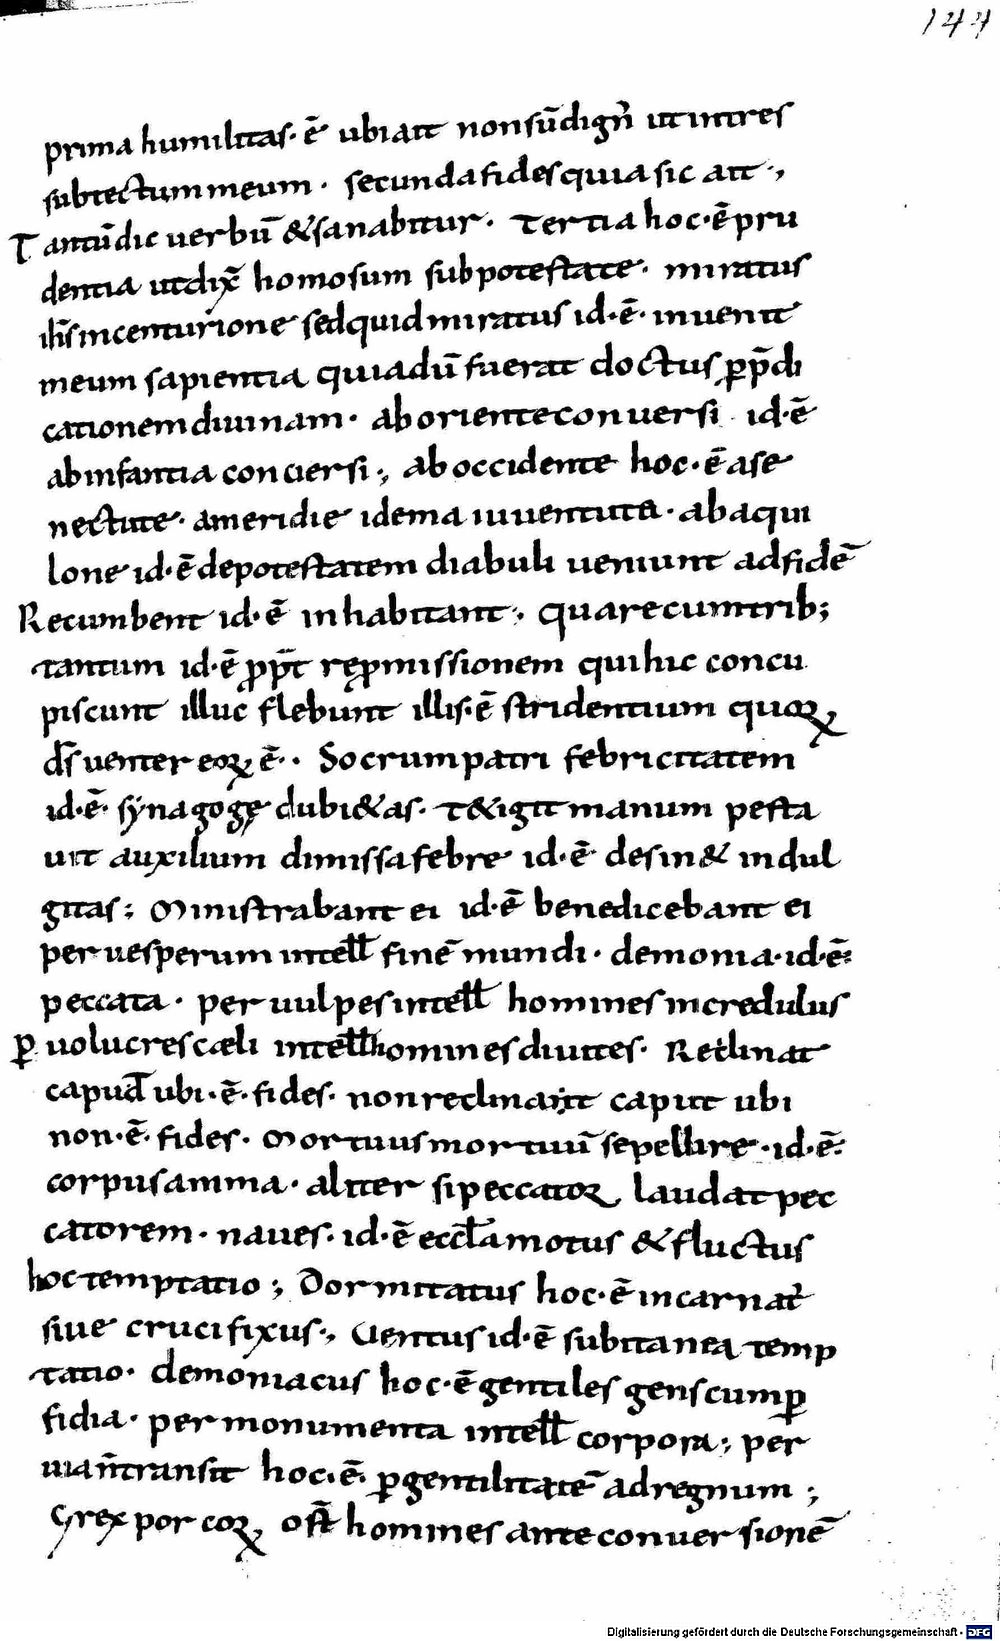 144
prima humilitas· ē ubi ait non sū dign̄ ut intres
sub tectum meum· secunda fides quia sic ait·,
Tantū dic uerbū & sanabitur· Tertia hoc·ē pru
dentia ut dix̄ homo sum sub potestate· miratus
ih̄s in centurione sed quid miratus id·ē· inuenit
meum sapientia quia dū fuerat doctus ꝑ p̄di
cationem diuinam· ab oriente conuersi· id·ē
ab infantia conuersi·, ab occidente hoc·ē a se
nectute· a meridie idem a iuuentute· ab aqui
lone id·ē de potestatem diabuli ueniunt ad fidē
Recumbent id·ē inhabitant·, quare cum trib;
tantum id·ē ꝓpt̄ reꝓmissionem qui hic concu
piscunt illuc flebunt illis·ē stridentium quoꝝ
d̄s uenter eoꝝ ē·· Socrum patri febricitatem
id·ē· synagogę dubi&as· t&igit manum pesta
uit auxilium dimissa febre id·ē desin& indul
gitas; Ministrabant ei id·ē benedicebant ei
per uesperum intell̄ finē mundi· demonia·id·ē·
peccata· per uulpes intell̄ homines incredulus
ꝑ uolucres cæli intell̄ homines diuites· Reclinat
capud ubi·ē· fides· non reclinait caput ubi
non·ē· fides· Mortuus mortuū sepellire·id·ē·
corpus amma· aliter si peccatoꝝ laudat pec
catorem· naues· id·ē eccl̄a motus & fluctus
hoc temptatio; Dormitatus hoc·ē incarnat̄
siue crucifixus·, Uentus id·ē subitanea temp
tatio· demoniacus hoc·ē gentiles gens cum ꝑ
fidia· per monumenta intell̄ corpora·, per
uiam̄ transit hoc·ē· ꝑ gentilitatē ad regnum;
Grex porcoꝝ ost̄ homines ante conuersionē
Digitalisierung gefördert durch die Deutsche Forschungsgemeinschaft - DFG